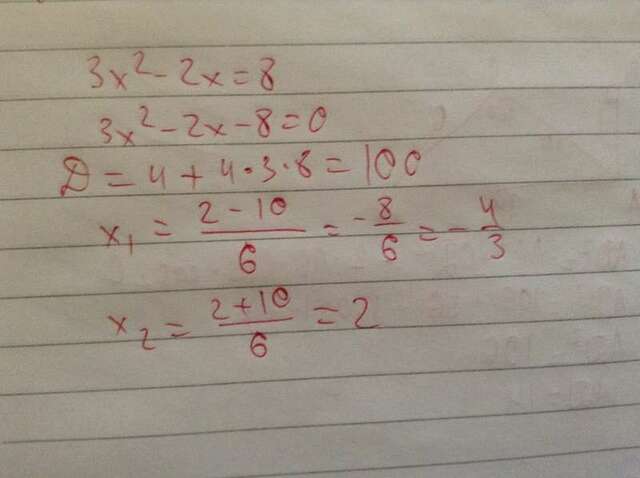 3x² - 2x = 8
3x² - 2x - 8 = 0
D = 4 + 4 · 3 · 8 = 100
x₁ = (2 - 10)/6 = -8/6 = -4/3
x₂ = (2 + 10)/6 = 2